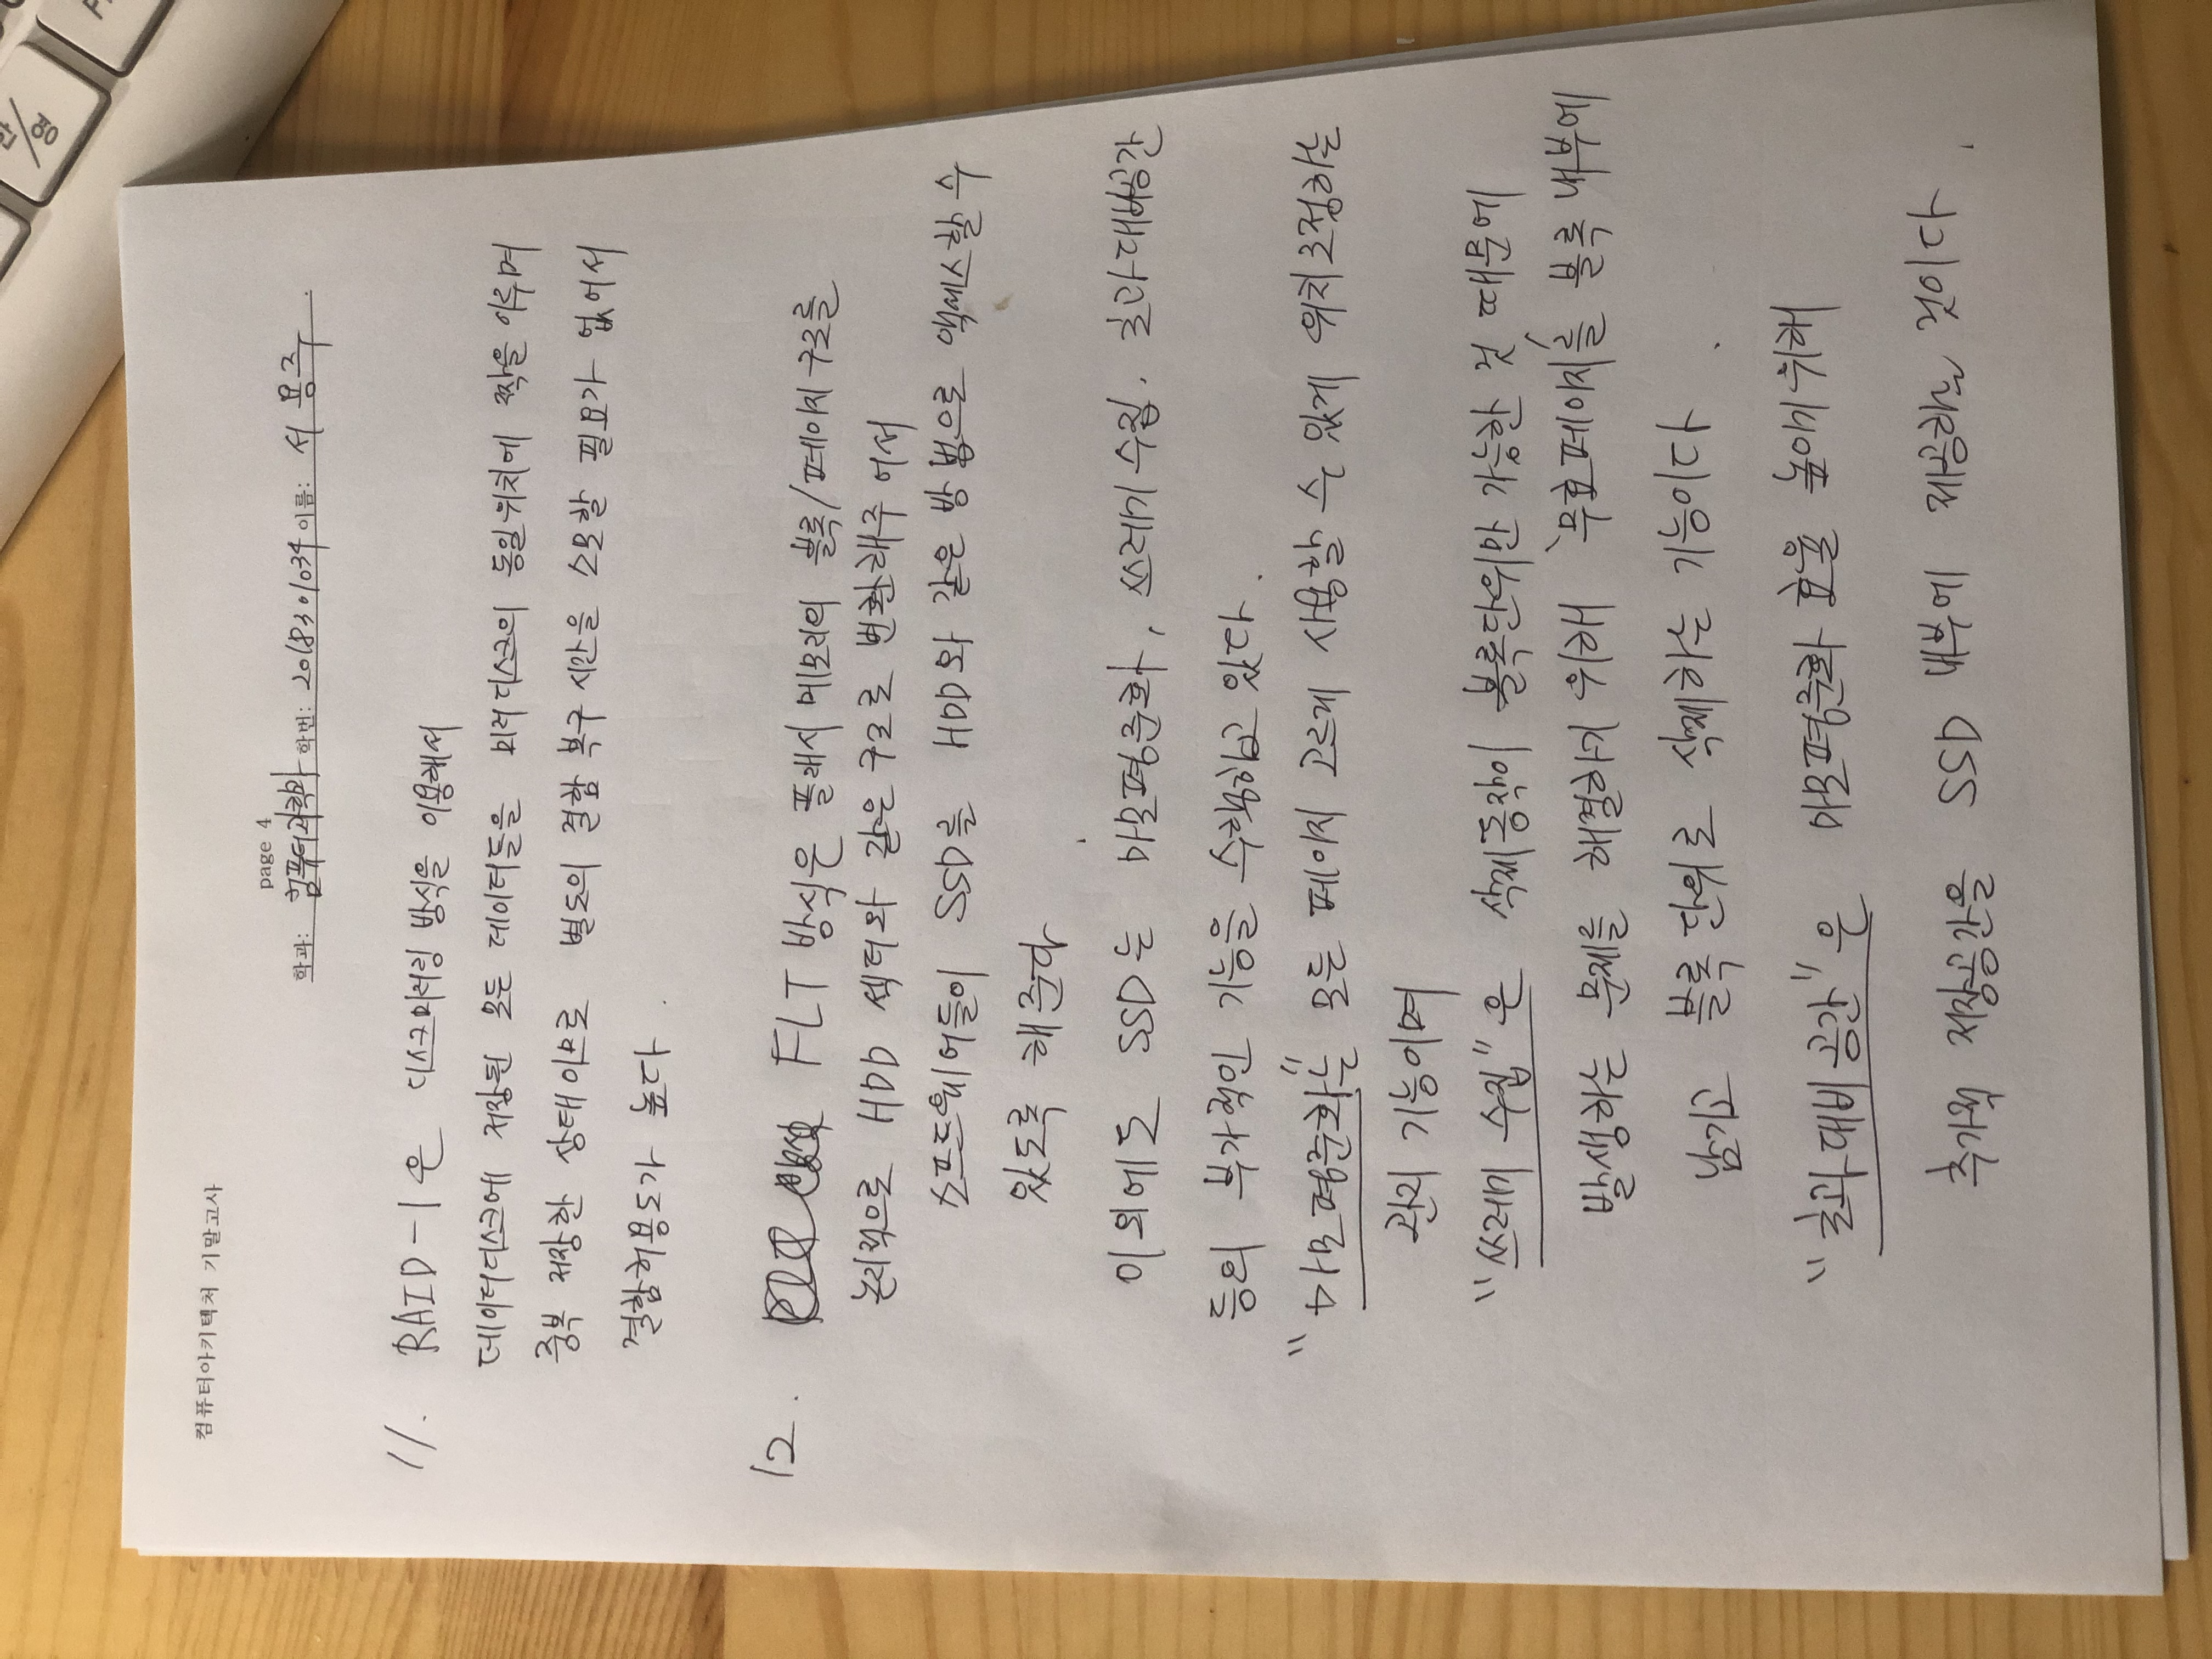 한/영
컴퓨터아키텍처 기말고사
page 4
학과: 컴퓨터과학과 학번: 2018301034 이름: 서용주
11. RAID-1은 디스크미러링 방식을 이용해서
데이터디스크에 저장된 모든 데이터들을 미러디스크의 동일위치에 짝을 이루며
중복 저장한 상태이므로 별도의 결함 복구 시간을 소모할 필요가 없어서
결함허용도가 높다.
12. FLT 방식은 플래시 메모리의 블록/페이지 구조를
논리적으로 HDD 섹터와 같은 구조로 변환해주어서
소프트웨어들이 SSD를 HDD와 같은 방법으로 액세스할 수
있도록 해준다.
이외에도 SSD는 마모평준화, 쓰레기수집. 초과대비공간
등의 부가적인 기능을 수행하고 있다.
"마모평준화"는 모든 페이지 고르게 사용할 수 있게 위치조정하는
관리 기능이며
"쓰레기 수집"은 삭제동작이 블록단위만 가능한 것 때문에
발생하는 문제를 해결하기 위해 '무효페이지'를 블록 내부에
남기고 블록단위로 삭제하는 기능이다.
"초과대비공간"은 마모평준화 효율 높이기 위해
추가적 저장공간을 SSD 내부에 제공하는 것이다.